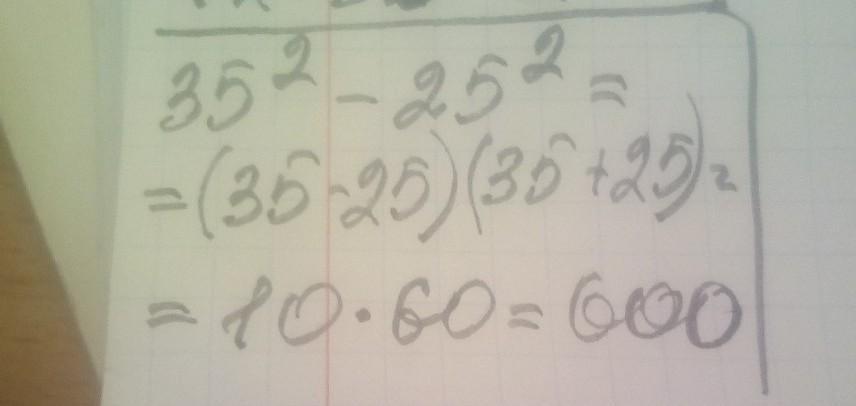 35² - 25² =
= (35 - 25)(35 + 25) =
= 10 · 60 = 600